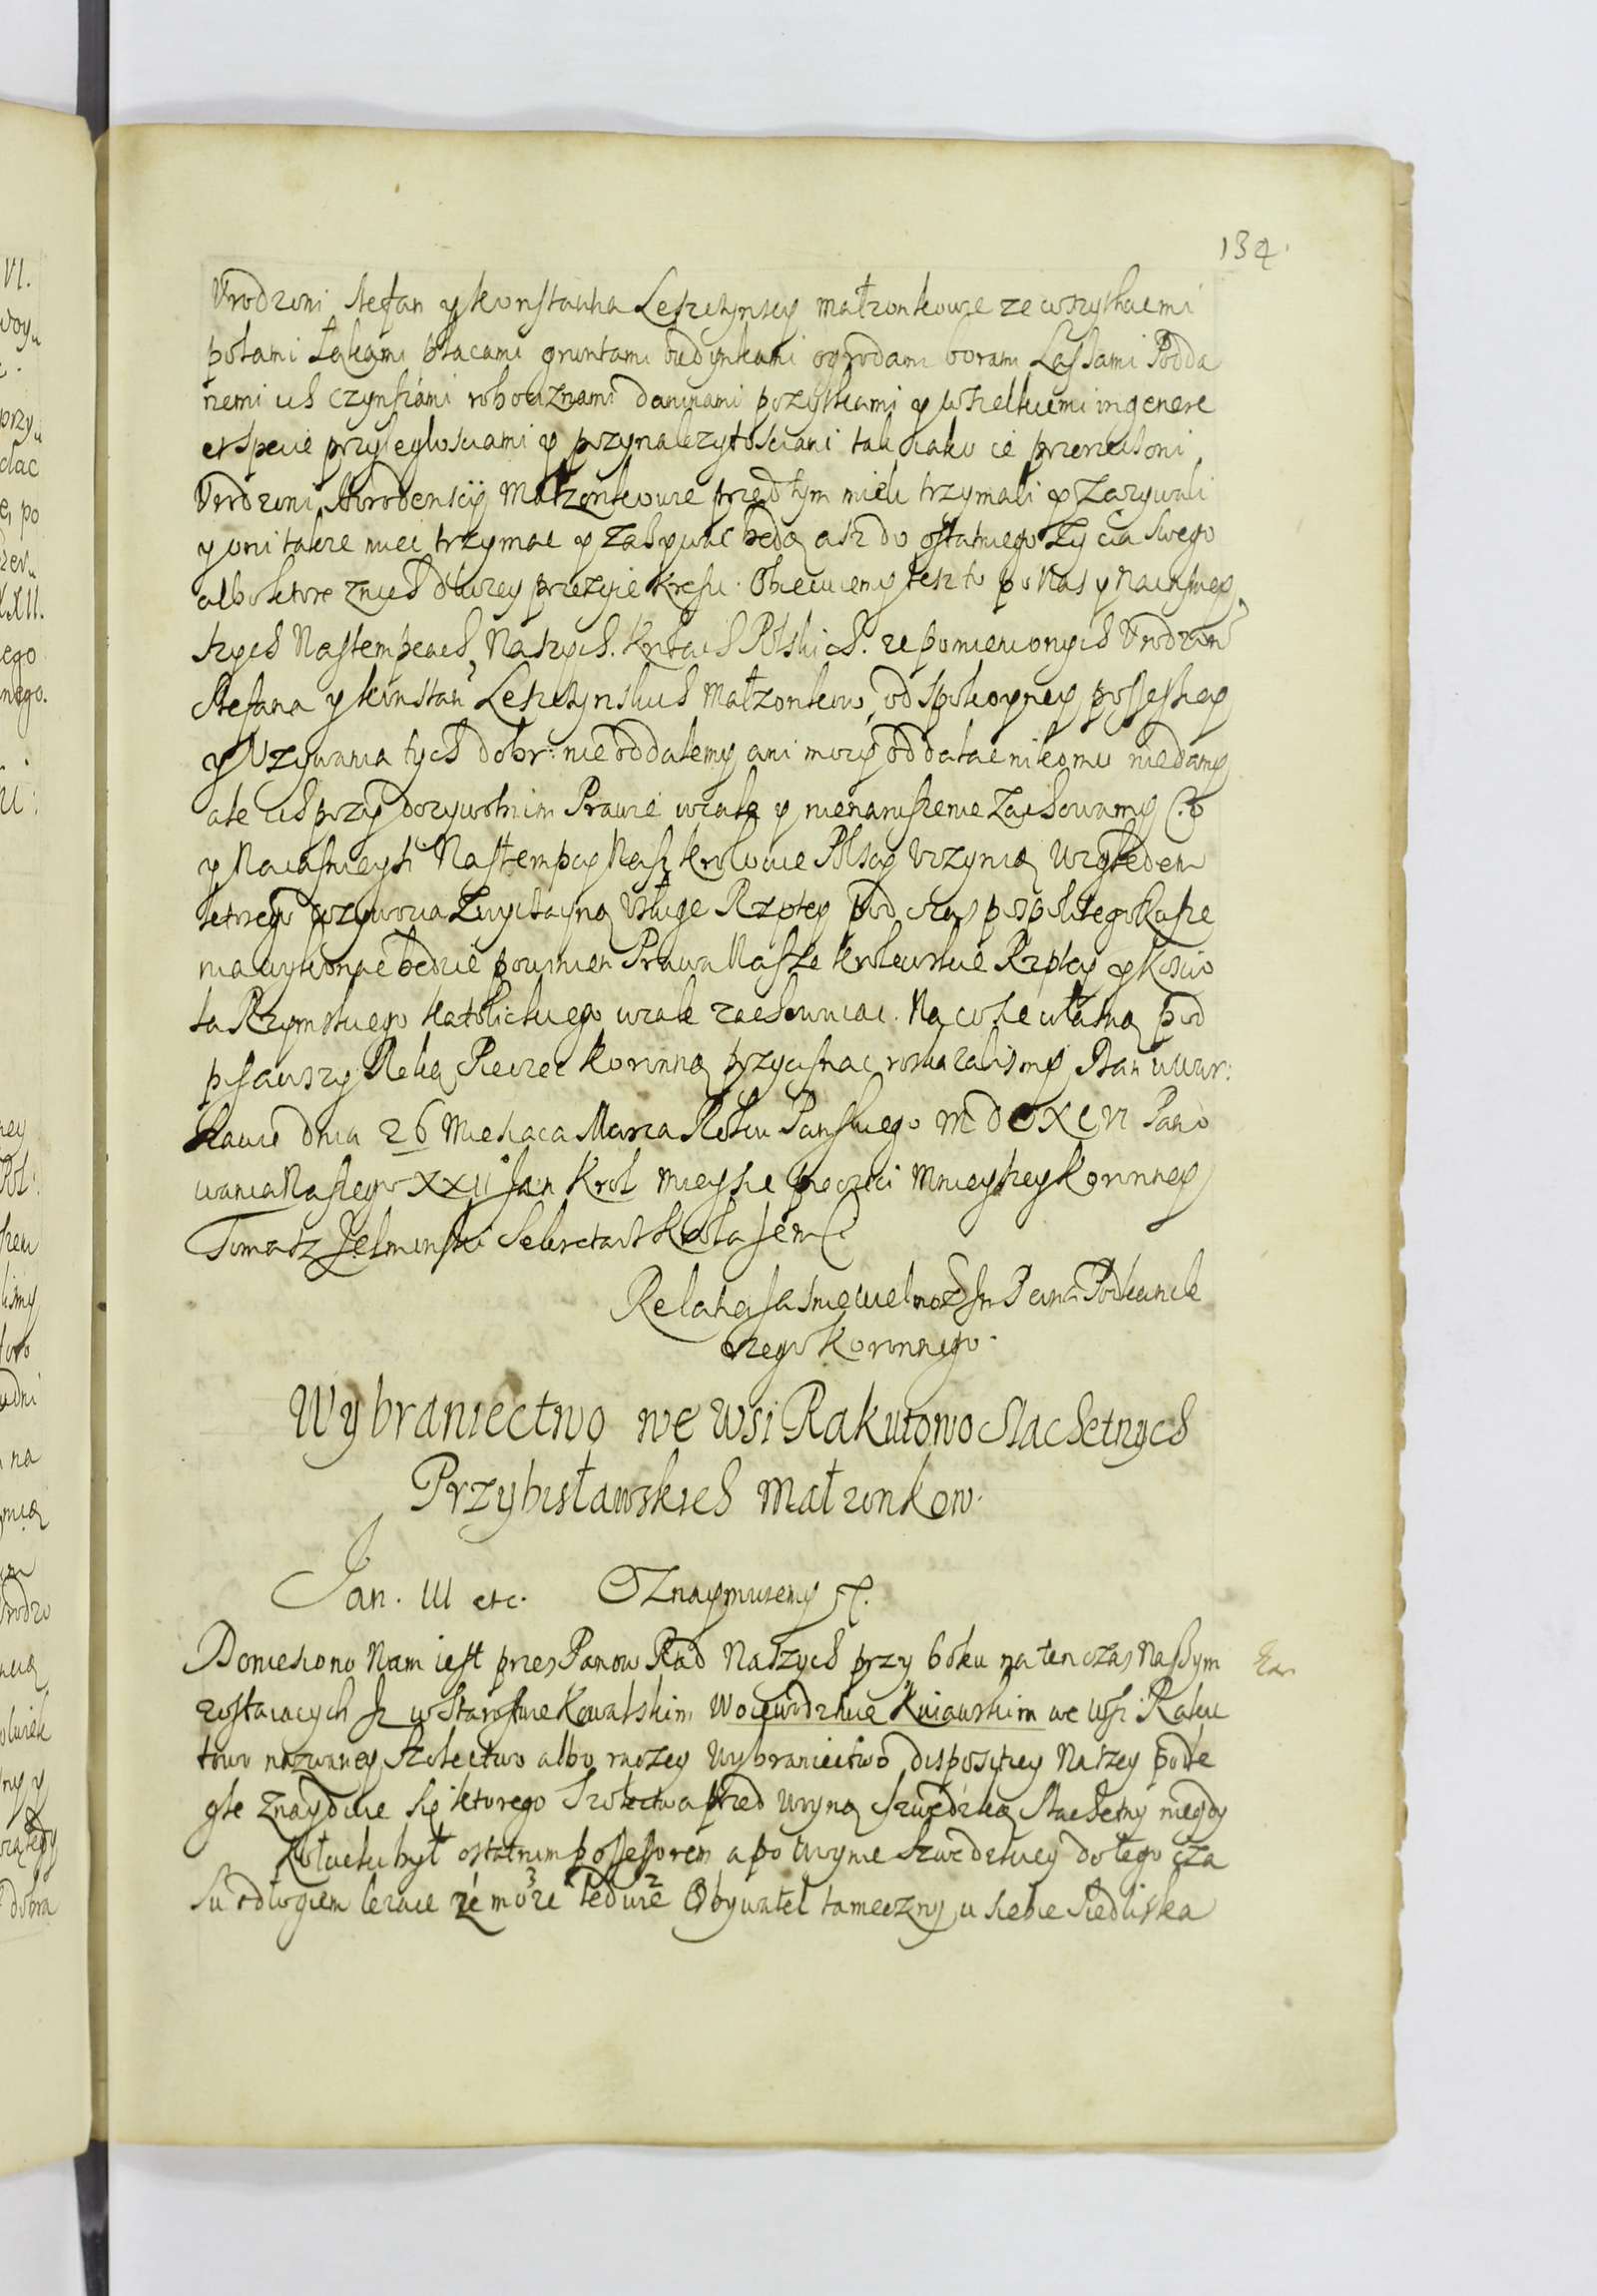 134.
Vrodzoni Stefan y Konstantia Leszczynscy małzonkowie ze wszystkiemi
polami Łąkami płacami gruntami budynkami ogrodami borami Lassami Podda
nemi ich czynszami robociznami daninami pozytkami y wszelkiemi in genere
et specie przyległosciami y przynalezytosciami tak iako ci przerzeczoni
Vrodzoni Małzonkowie przed tym mieli trzymali y Zazywali
y oni takze miec trzymac y Zazywac będą asz do ostatniego Zycia swego
albo ktore z nich dłuzey przezyie kresu. Obiecuiemy tesz to po Nas y Naiasniey
szych Nastempcach Naszych. Krolach Polskich. ze pomienionych Vrodzon
Stefana y Konstan Leszczynskich Małzonkow, od spokoyney possessyey
y Vzywania tych dobr: nie oddalemy ani mocy oddalac nikomu niedamy
ale ich przy dozywotnim Prawie wcale y nienaruszenie Zachowamy Co
y Naiasnieysi Nastempcy Nasi krolowie Polscy vczynią Względem
ktorego dozywocia Zwyczayną Vsługe Rzptey pod czas pospolitego Rusze
nia wykonac będzie powinien Prawa Nasze krolewskie Rzptey y Koscio
ła Rzymskiego Katolickiego wcale zachowuiąc. Na co sie własną pod
pisawszy Ręką Pieczęc Koronną przycisnąc roskazalismy Dan w War:
szawie dnia 26 Miesiaca Marca Roku Panskiego MDCXCVI Pano
wania Naszego XXII Jan Krol mieysce pieczęci Mnieyszey Koronney
Tomasz Sekretarz
Relatia Jasniewielmoz Jm Pana Podkancle
rzego Koronnego.
Wybraniectwo we wsi Rakutowo Slachetnych
Przybisławskich Małzonkow.
Jan. III etc. Oznaymuiemy
Doniesiono Nam iest przes Panow Rad Naszych przy boku na ten czas Naszym
zostaiacych Jz w Starostwie Kowalskim Woiewodztwie Kuiawskim we Wsi Raku
towo nazwaney Szołectwo albo raczey Wybraniectwo dispositiey Naszey podle
głe Znayduie się ktorego Szołectwa przed woyną szwedzką Slachetny niegdy
był ostatnim possessorem a po woynie Szwedzkiey do tego cza
su odłogiem lezące ze moze 3 ledwie 2 Obywatel tameczny u siebie siedliska